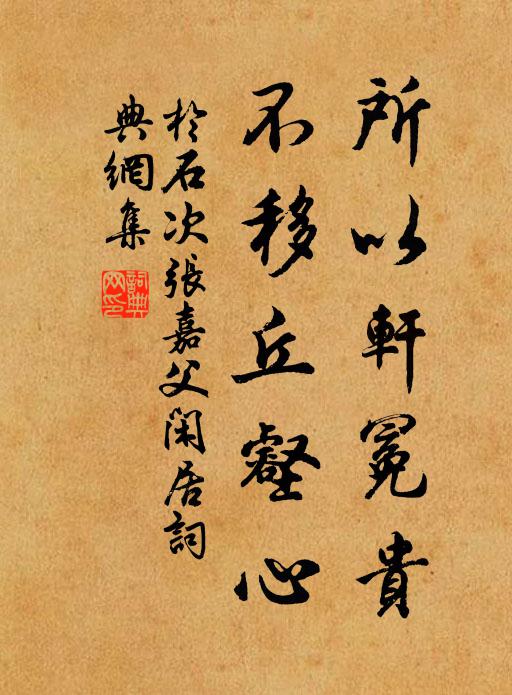 所以軒冕貴
不移丘壑心
於石次張嘉父閑居詞
典網集
詞典
网印